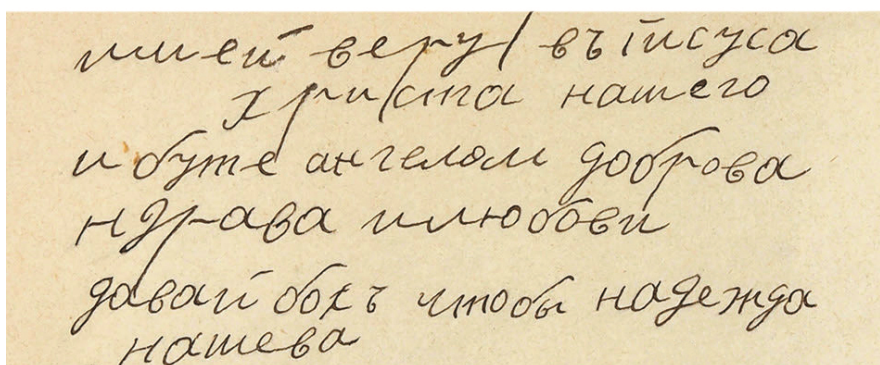 имей веру въ Iисуса
христа нашего
и буте ангелом доброва
ндрава и любови
давай бохъ чтобы надежда
нашева